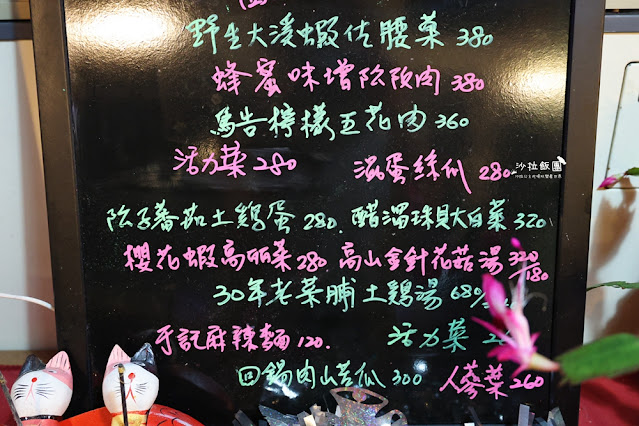 野生大溪蝦佐腰菓 380
蜂蜜味增松阪肉 380
馬告檸檬五花肉 360
活力菜 280 滋蛋絲瓜 280
沙拉飯團
蕃茄土鷄蛋 280. 醋溜珠貝大白菜 320
櫻花蝦高丽菜 280 高山金針花菇湯 320/180
30年老菜脯土鷄湯 680/
手記麻辣麵 120. 活力菜
回鍋肉山苦瓜 300 人蔘葉 260